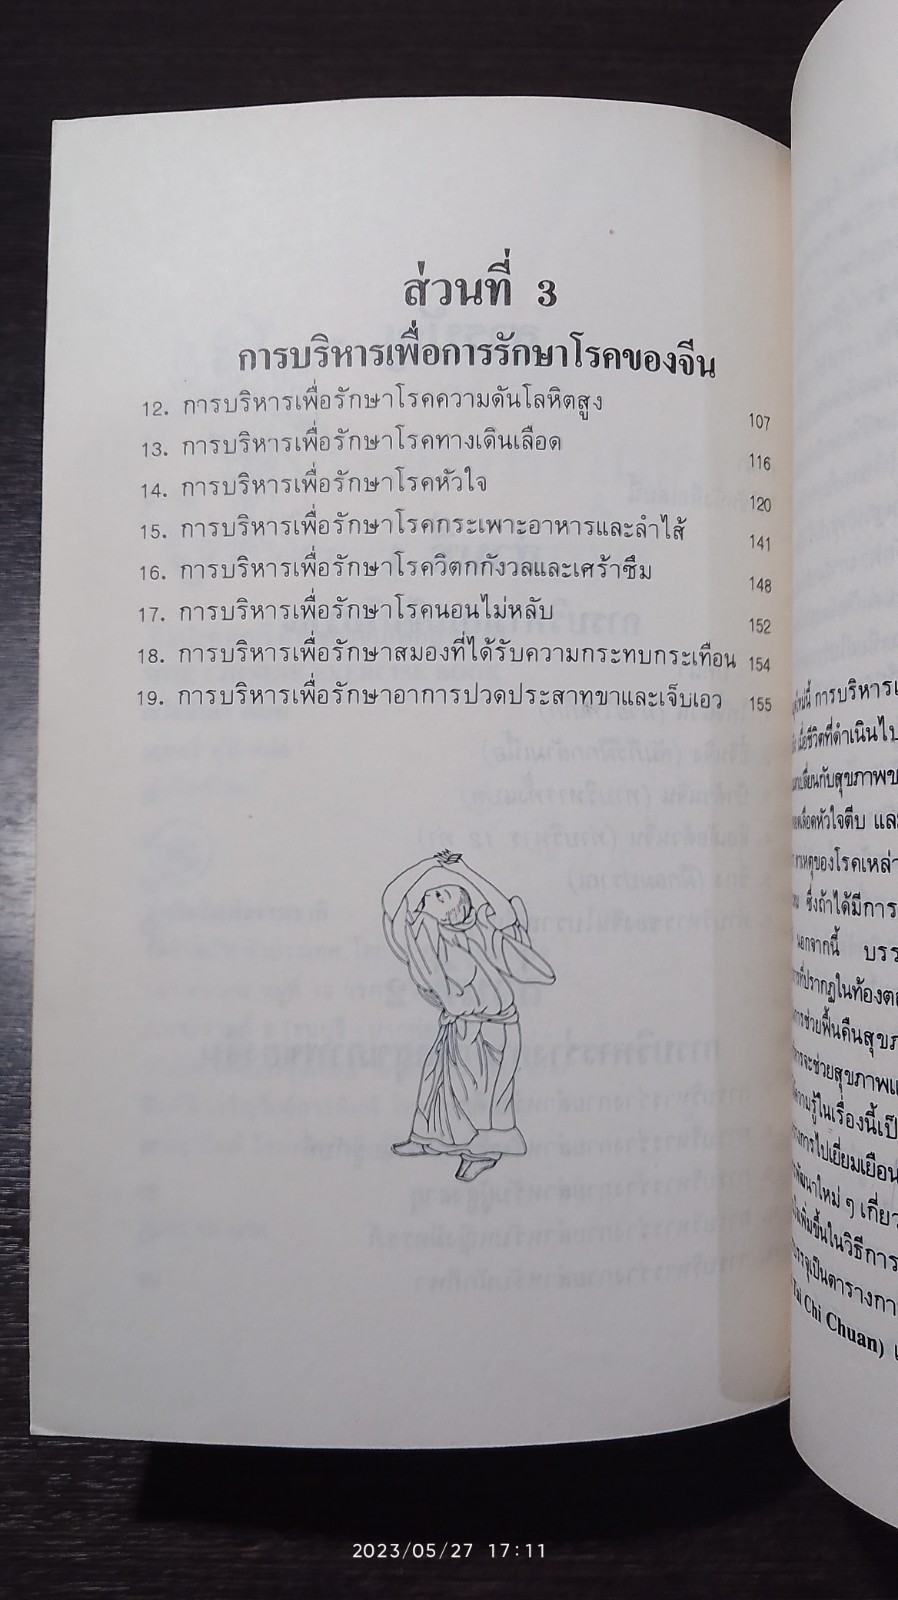 ส่วนที่ 3
การบริหารเพื่อการรักษาโรคของจีน
12. การบริหารเพื่อรักษาโรคความดันโลหิตสูง 107
13. การบริหารเพื่อรักษาโรคทางเดินเลือด 116
14. การบริหารเพื่อรักษาโรคหัวใจ 120
15. การบริหารเพื่อรักษาโรคกระเพาะอาหารและลำไส้ 141
16. การบริหารเพื่อรักษาโรควิตกกังวลและเศร้าซึม 148
17. การบริหารเพื่อรักษาโรคนอนไม่หลับ 152
18. การบริหารเพื่อรักษาสมองที่ได้รับความกระทบกระเทือน 154
19. การบริหารเพื่อรักษาอาการปวดประสาทขาและเจ็บเอว 155
การบริหาร
ชีวิตที่ดำเนินไป
กับสุขภาพ
หัวใจตีบ
ของโรคเหล่า
ซึ่งถ้าได้มีการ
นอกจากนี้ บรร
ที่ปรากฏในท้องต
การช่วยฟื้นคืนสุข
จะช่วยสุขภาพ
ความรู้ในเรื่องนี้เป็
การไปเยี่ยมเยือน
พัฒนาใหม่ ๆ เกี่ยว
เพิ่มขึ้นในวิธีการ
เป็นตารางกา
Chi Chuan)
2023/05/27 17:11